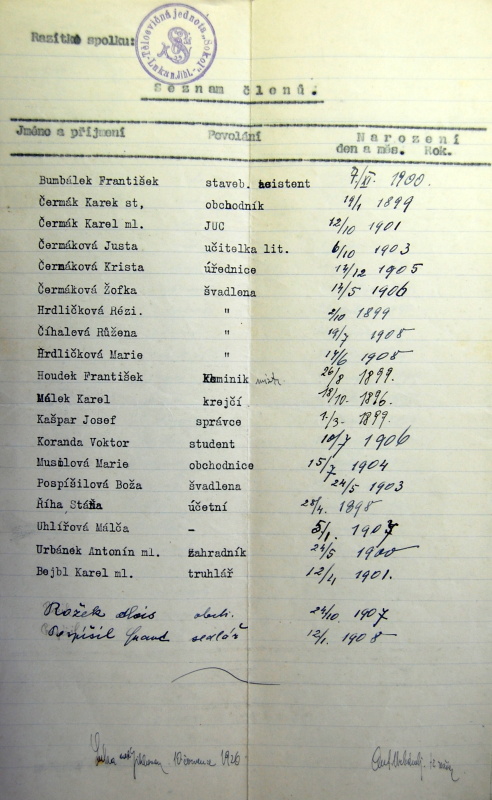 Razítko spolku:
Tělocvičná jednota „Sokol"
Seznam členů.
Jméno a příjmení Povolání Narození
den a měs. Rok.
Bumbálek František staveb. asistent 7/XI. 1900.
Čermák Karek st, obchodník 19/1 1899
Čermák Karel ml. JUC 12/10 1901
Čermáková Justa učitelka lit. 6/10 1903
Čermáková Krista úřednice 17/12 1905
Čermáková Žofka švadlena 17/5 1906
Hrdličková Rézi. " 2/10 1899
Číhalová Růžena " 19/7 1908
Hrdličková Marie " 17/6 1908
Houdek František Kominik mistr 26/8 1899.
Málek Karel krejčí 18/10. 1896.
Kašpar Josef správce 1./3. 1899.
Koranda Voktor student 10/7 1906
Musilová Marie obchodnice 15/7 1904
Pospíšilová Boža švadlena 24/5 1903
Říha Stáňa účetní 28/4. 1898
Uhlířová Málča - 5/1. 1907
Urbánek Antonín ml. zahradník 24/5 1900
Bejbl Karel ml. truhlář 12/4 1901.
Rožek Alois obch. 24/10. 1907
Pospíšil sedlář 12/1. 1908
Luka nad Jihlavou. 10 července 1926